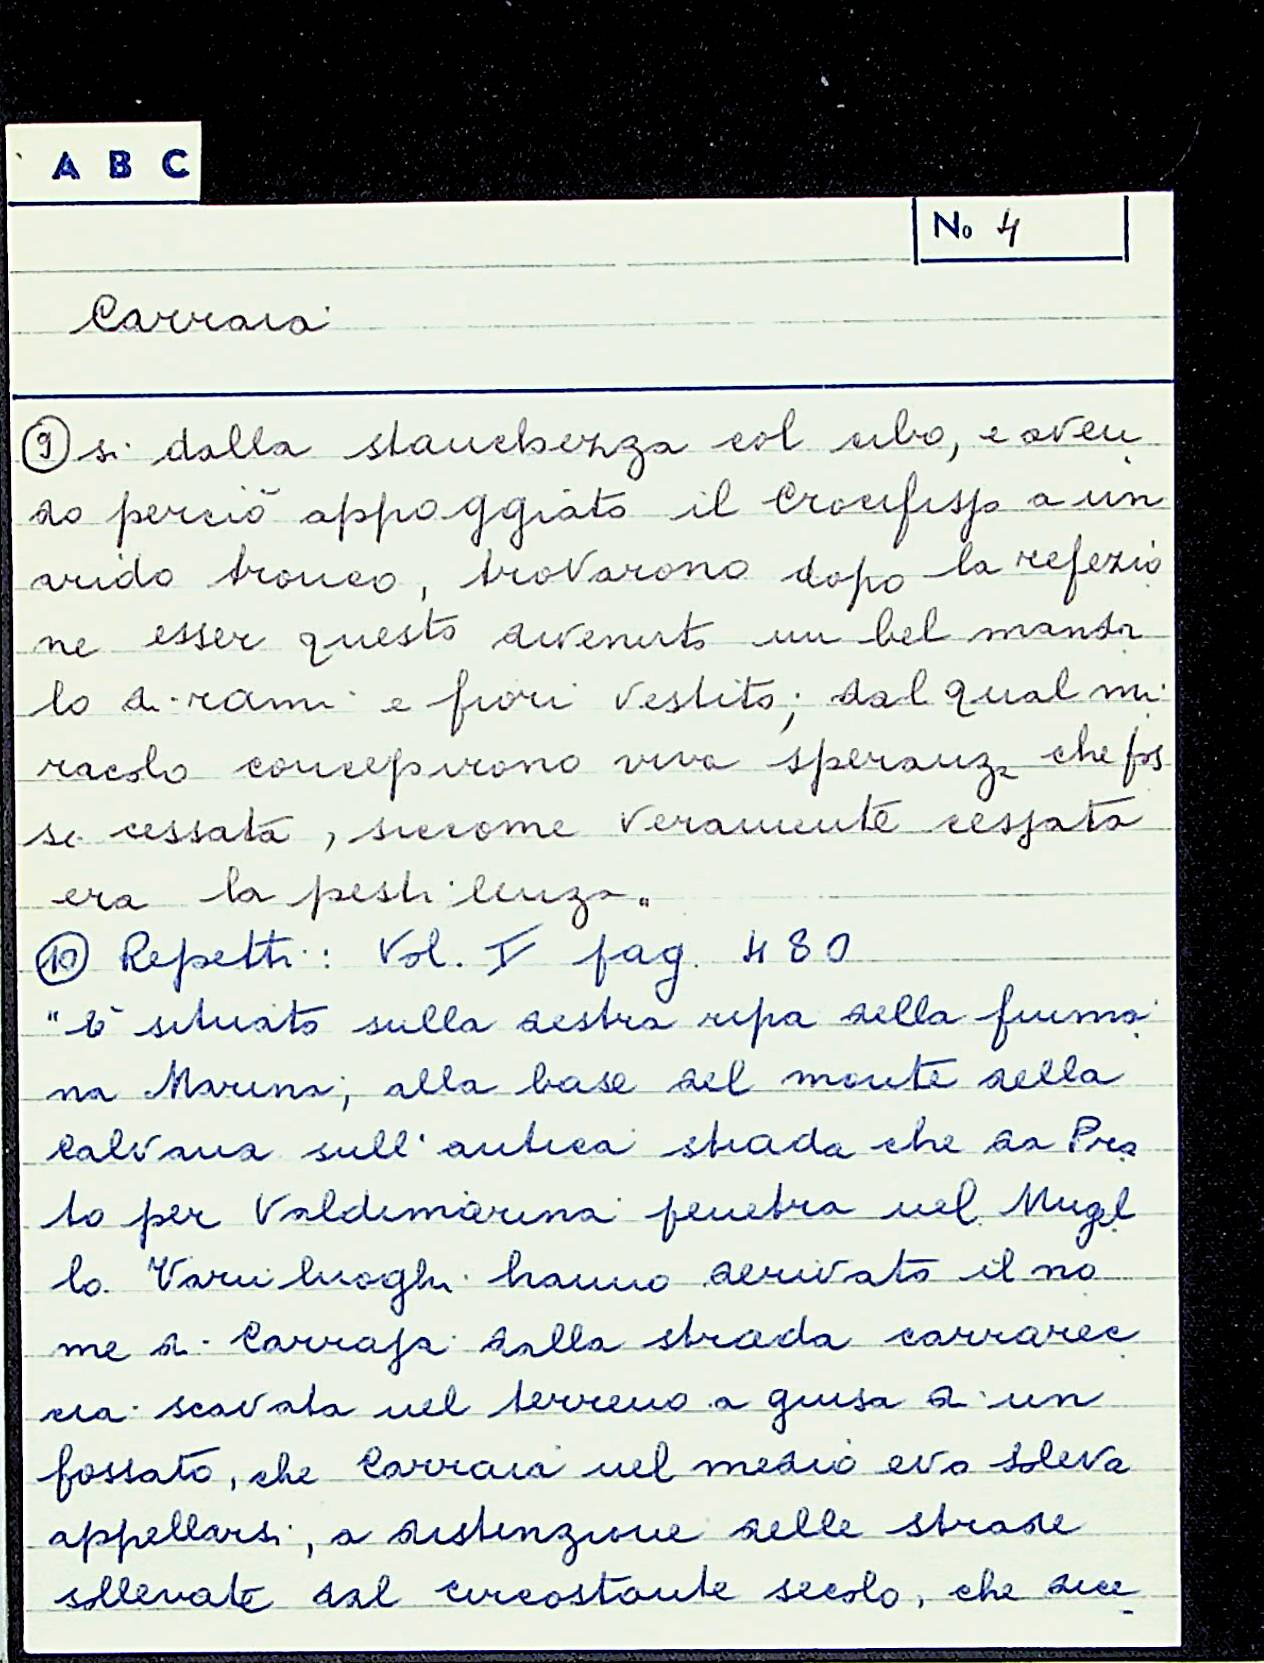 A B C
No 4
Carraia
9 si dalla stanchezza col cibo, e aven
do perciò appoggiato il Crocifisso a un
arido tronco, trovarono dopo la refezio
ne esser questo divenuto un bel mandr
lo di rami e fiori vestito; dal qual mi
racolo concepirono viva speranza che fos
se cessata, siccome veramente cessata
era la pestilenza"
10 Repetti: Vol. I pag. 480
"È situato sulla destra ripa della fiuma
na Marina, alla base del monte della
Calvana sull'antica strada che da Pra
to per Valdimarina penetra nel Mugel
lo. Varii luoghi hanno derivato il no
me di Carraja dalla strada carrarec
cia scavata nel terreno a guisa di un
fossato, che Carraia nel medio evo soleva
appellarsi, a distinzione delle strade
sollevate dal circostante secolo, che dice